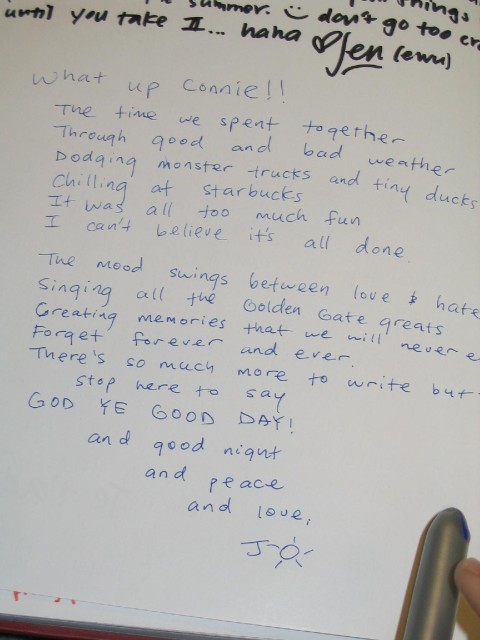 summer. don't go too
things
until you take II... haha Jen (ewu)
What up Connie!!
The time we spent together
Through good and bad weather
Dodging monster trucks and tiny ducks
Chilling at starbucks
It was all too much fun
I can't believe it's all done.
The mood swings between love & hate
Singing all the Golden Gate greats
Creating memories that we will never
Forget forever and ever.
There's so much more to write but
stop here to say
GOD YE GOOD DAY!
and good night
and peace
and love,
J